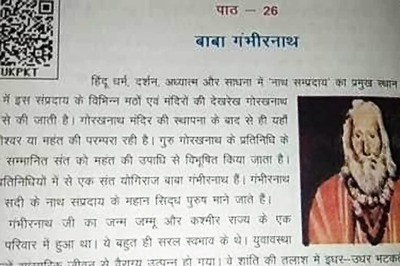 पाठ – 26
बाबा गंभीरनाथ
UKPKT
हिंदू धर्म, दर्शन, अध्यात्म और साधना में 'नाथ सम्प्रदाय' का प्रमुख स्थान
में इस संप्रदाय के विभिन्न मठों एवं मंदिरों की देखरेख गोरखनाथ
से की जाती है। गोरखनाथ मंदिर की स्थापना के बाद से ही यहाँ
श्वर या महंत की परम्परा रही है। गुरु गोरखनाथ के प्रतिनिधि के
सम्मानित संत को महंत की उपाधि से विभूषित किया जाता है।
प्रतिनिधियों में से एक संत योगिराज बाबा गंभीरनाथ हैं। गंभीरनाथ
सदी के नाथ संप्रदाय के महान सिद्ध पुरुष माने जाते है।
गंभीरनाथ जी का जन्म जम्मू और कश्मीर राज्य के एक
परिवार में हुआ था। ये बहुत ही सरल स्वभाव के थे। युवावस्था
जीवन से वैराग्य उत्पन्न हो गया। वे शांति की तलाश में इधर–उधर भटकते